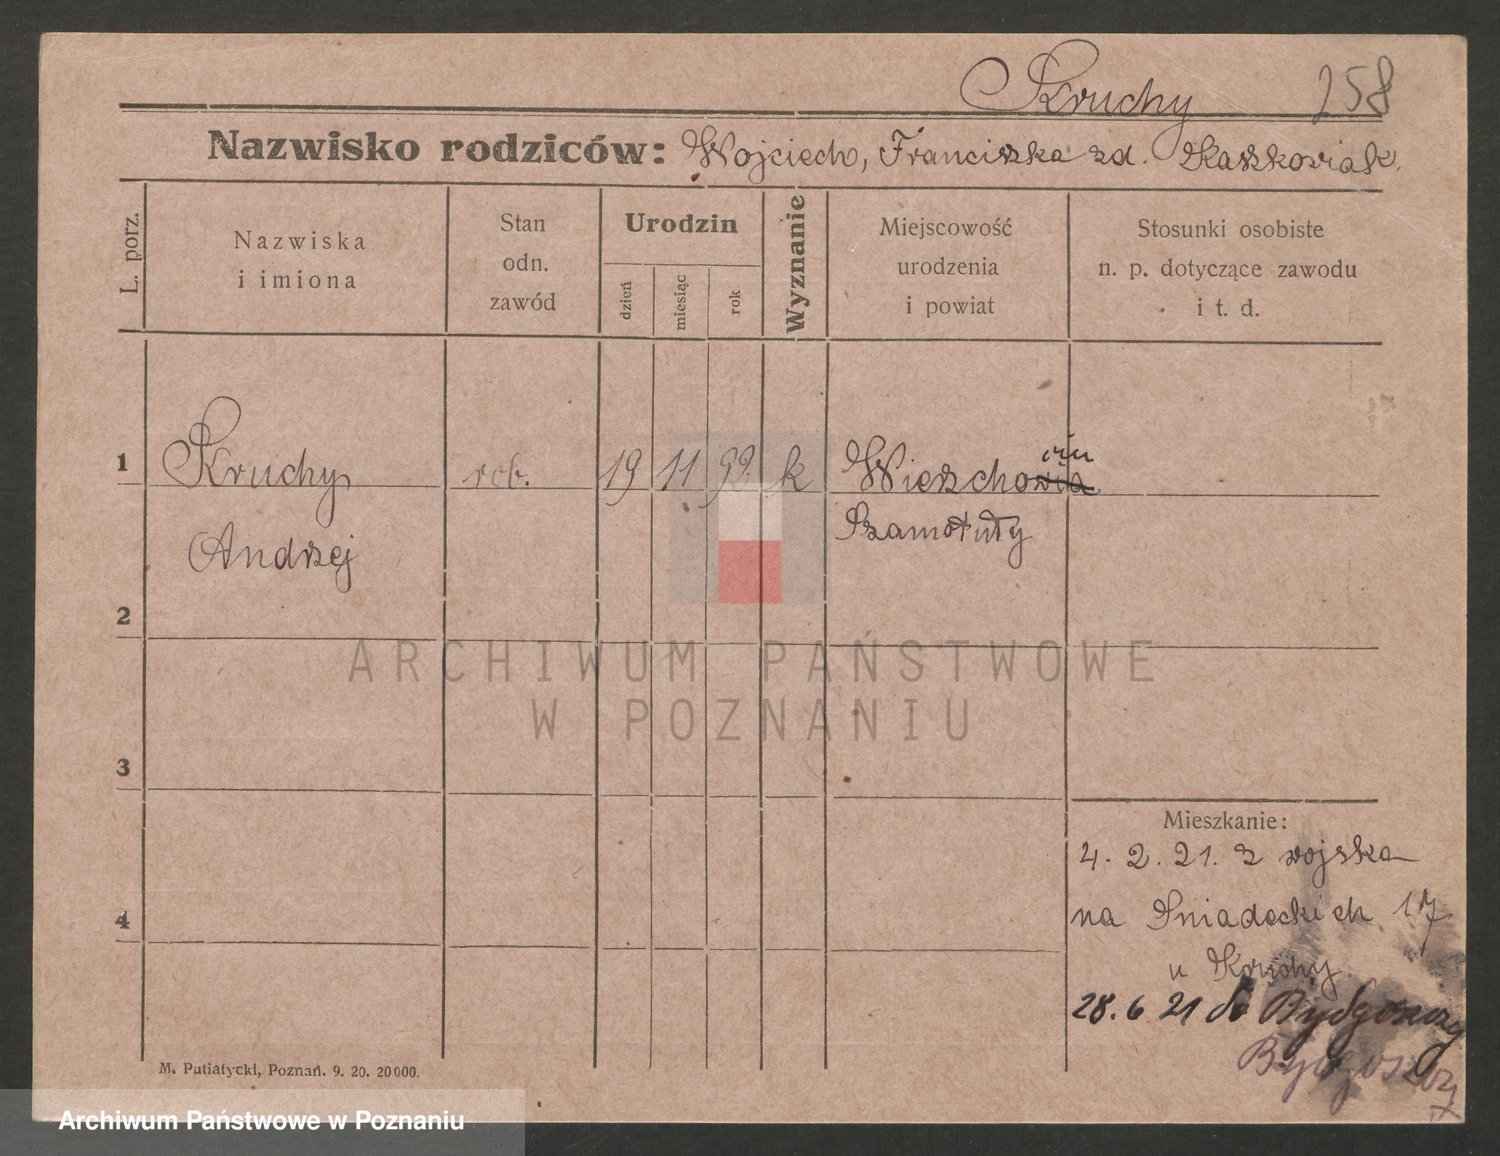 Kruchy 258
Nazwisko rodziców: Wojciech, Franciszka zd. Kaszkowiak.
L. porz.
Nazwiska
i imiona
Stan
odn.
zawód
Urodzin
dzień
miesiąc
rok
Wyznanie
Miejscowość
urodzenia
i powiat
Stosunki osobiste
n. p. dotyczące zawodu
i t. d.
1 Kruchy rob. 19 11 99. k Wierzchowin
Andrzej Szamotuły
2
3
4
Mieszkanie:
4. 2. 21. z wojska
na Śniadeckich 17
u Kruchy
28. 6 21 do Bydgoszczy
Bydgoszczy
M. Putiatycki, Poznań. 9. 20. 20000.
ARCHIWUM PAŃSTWOWE
W POZNANIU
Archiwum Państwowe w Poznaniu